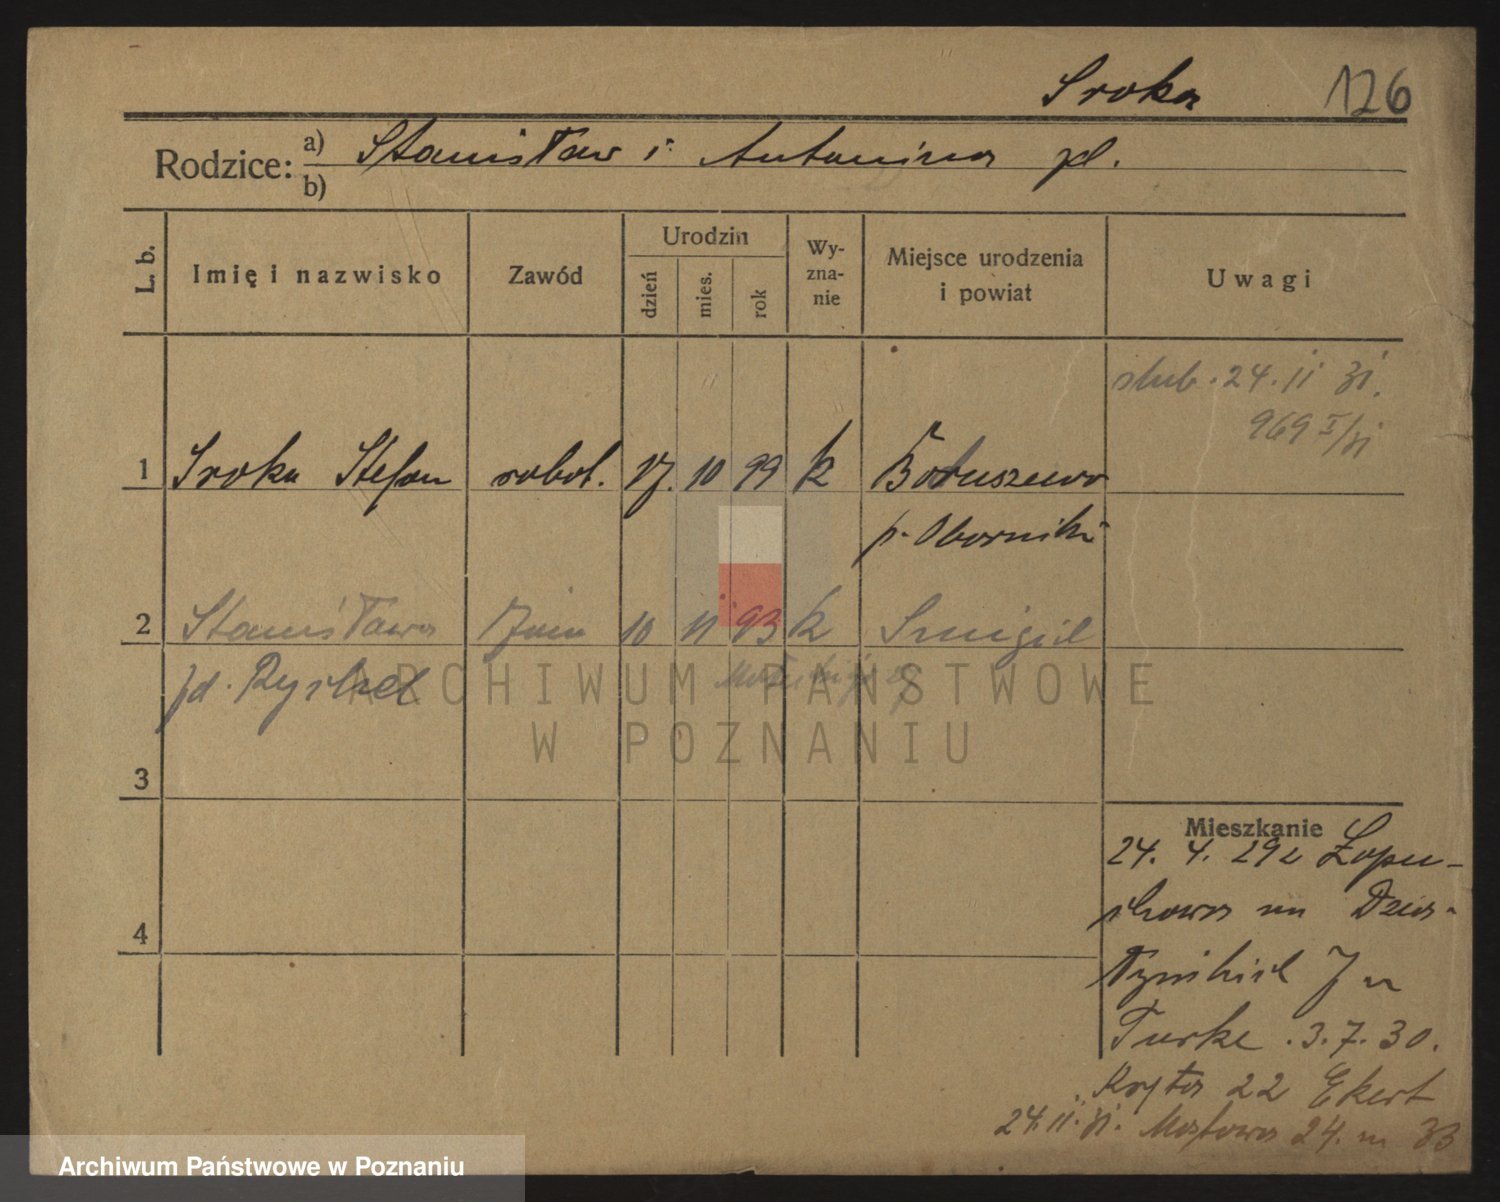 Sroka 126
Rodzice: a) Stanisław i Antonina pl.
b)
L. b. Imię i nazwisko Zawód Urodzin dzień mies. rok Wy-zna-nie Miejsce urodzenia i powiat Uwagi
ślub. 24. 11 31.
969 I/31
1 Sroka Stefan robot. 17. 10 99 k Boruszewo
p. Oborniki
2 Stanisława żona 10 11 93 k Śmigiel
zd.
3
Mieszkanie
24. 4. 29 z Łopu-
chowa na Dzia-
4
łyńskich 7 u
Turke . 3. 7. 30.
Kręta 22 Ekert
24. 11. 31. Mostowa 24. m 33
ARCHIWUM PAŃSTWOWE
W POZNANIU
Archiwum Państwowe w Poznaniu